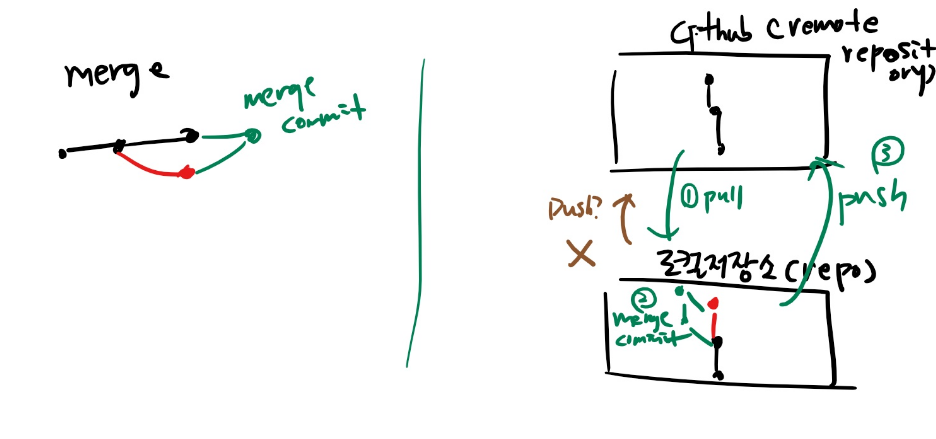 merge
merge
commit
Github (remote
reposit
ory)
① pull
push?
X
③
push
로컬저장소(repo)
②
merge
commit